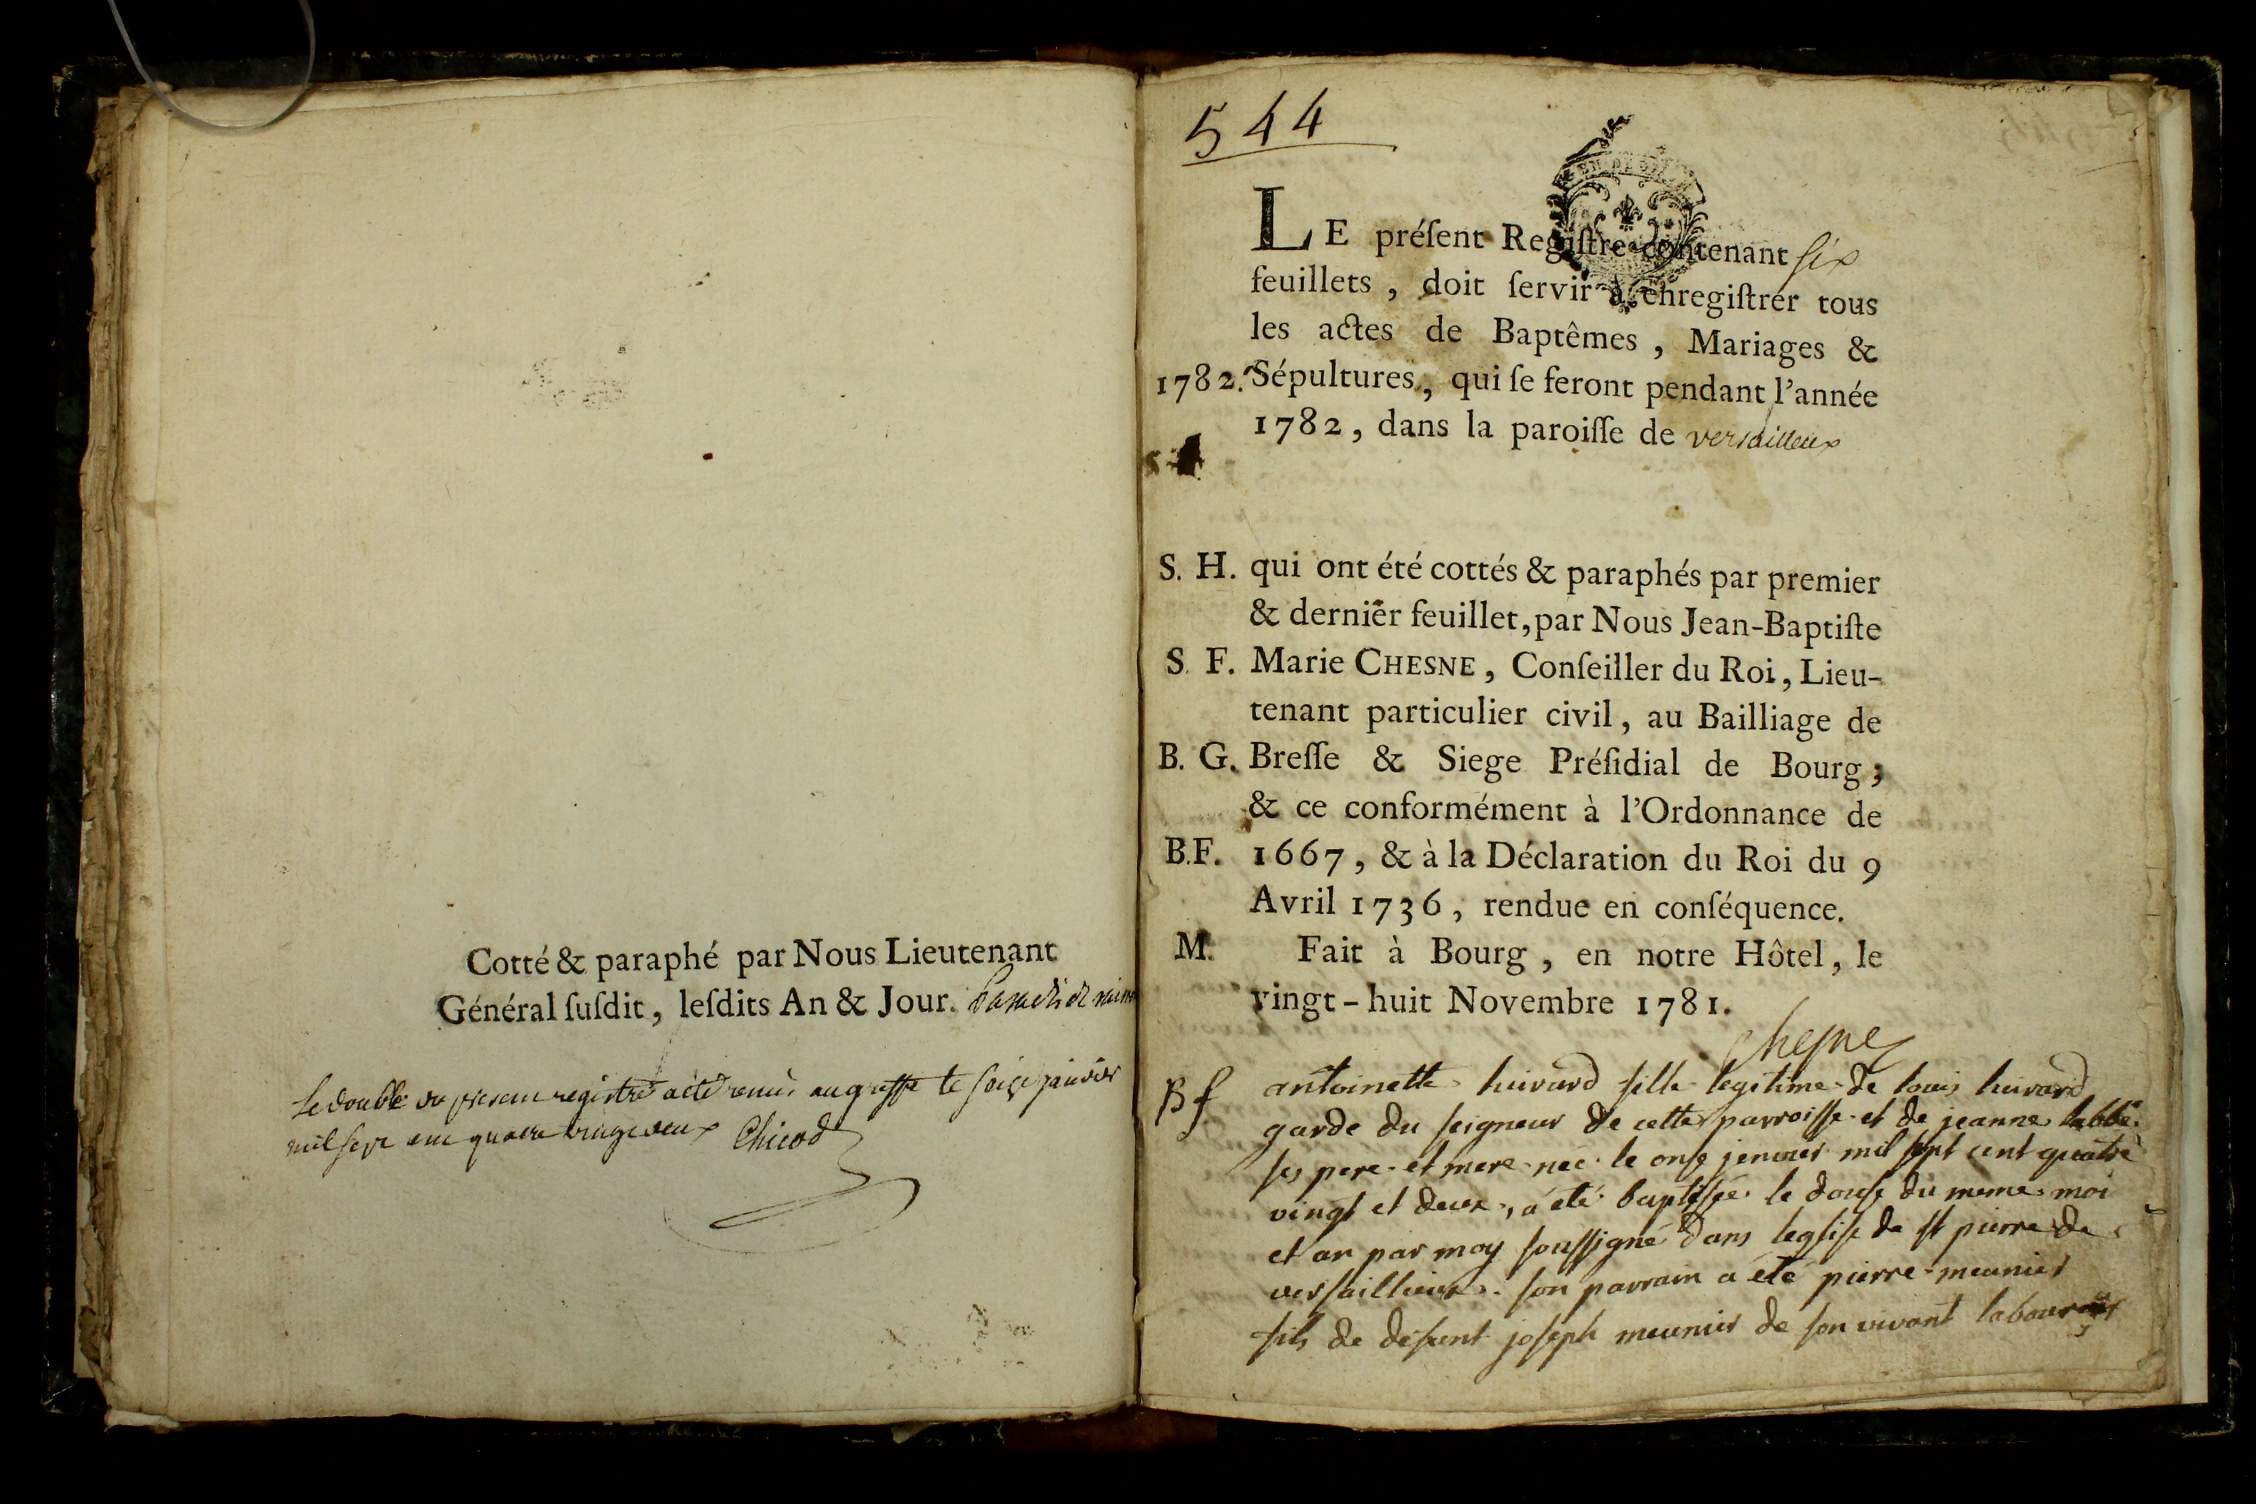 Cotté & paraphé par Nous Lieutenant
Général ſuſdit, leſdits An & Jour.
Le double du present registre a été remis au greffe le seize janvier
mil sept cent quatre vingt deux Chicod
544
LE préſent Regiſtre contenant six
feuillets, doit ſervir à enregiſtrer tous
les actes de Baptêmes, Mariages &
1782. Sépultures, qui ſe feront pendant l'année
1782, dans la paroiſſe de versailleux
S. H. qui ont été cottés & paraphés par premier
& dernier feuillet, par Nous Jean-Baptiſte
S. F. Marie CHESNE, Conſeiller du Roi, Lieu-
tenant particulier civil, au Bailliage de
B. G. Breſſe & Siege Préſidial de Bourg;
& ce conformément à l'Ordonnance de
B.F. 1667, & à la Déclaration du Roi du 9
Avril 1736, rendue en conſéquence.
M. Fait à Bourg, en notre Hôtel, le
vingt-huit Novembre 1781.
Chesne
Bf antoinette huvard fille legitime de louis huvard
garde du seigneur de cette parroisse et de jeanne labbé
ses pere et mere nec le onse jenvier mil sept cent quatre
vingt et deux, a été baptisée le douse du meme moi
et an par moy soussigné dans leglise de st pierre de
versaillieux. son parrain a été pierre meunier
fils de defunt joseph meunier de son vivant laboureur